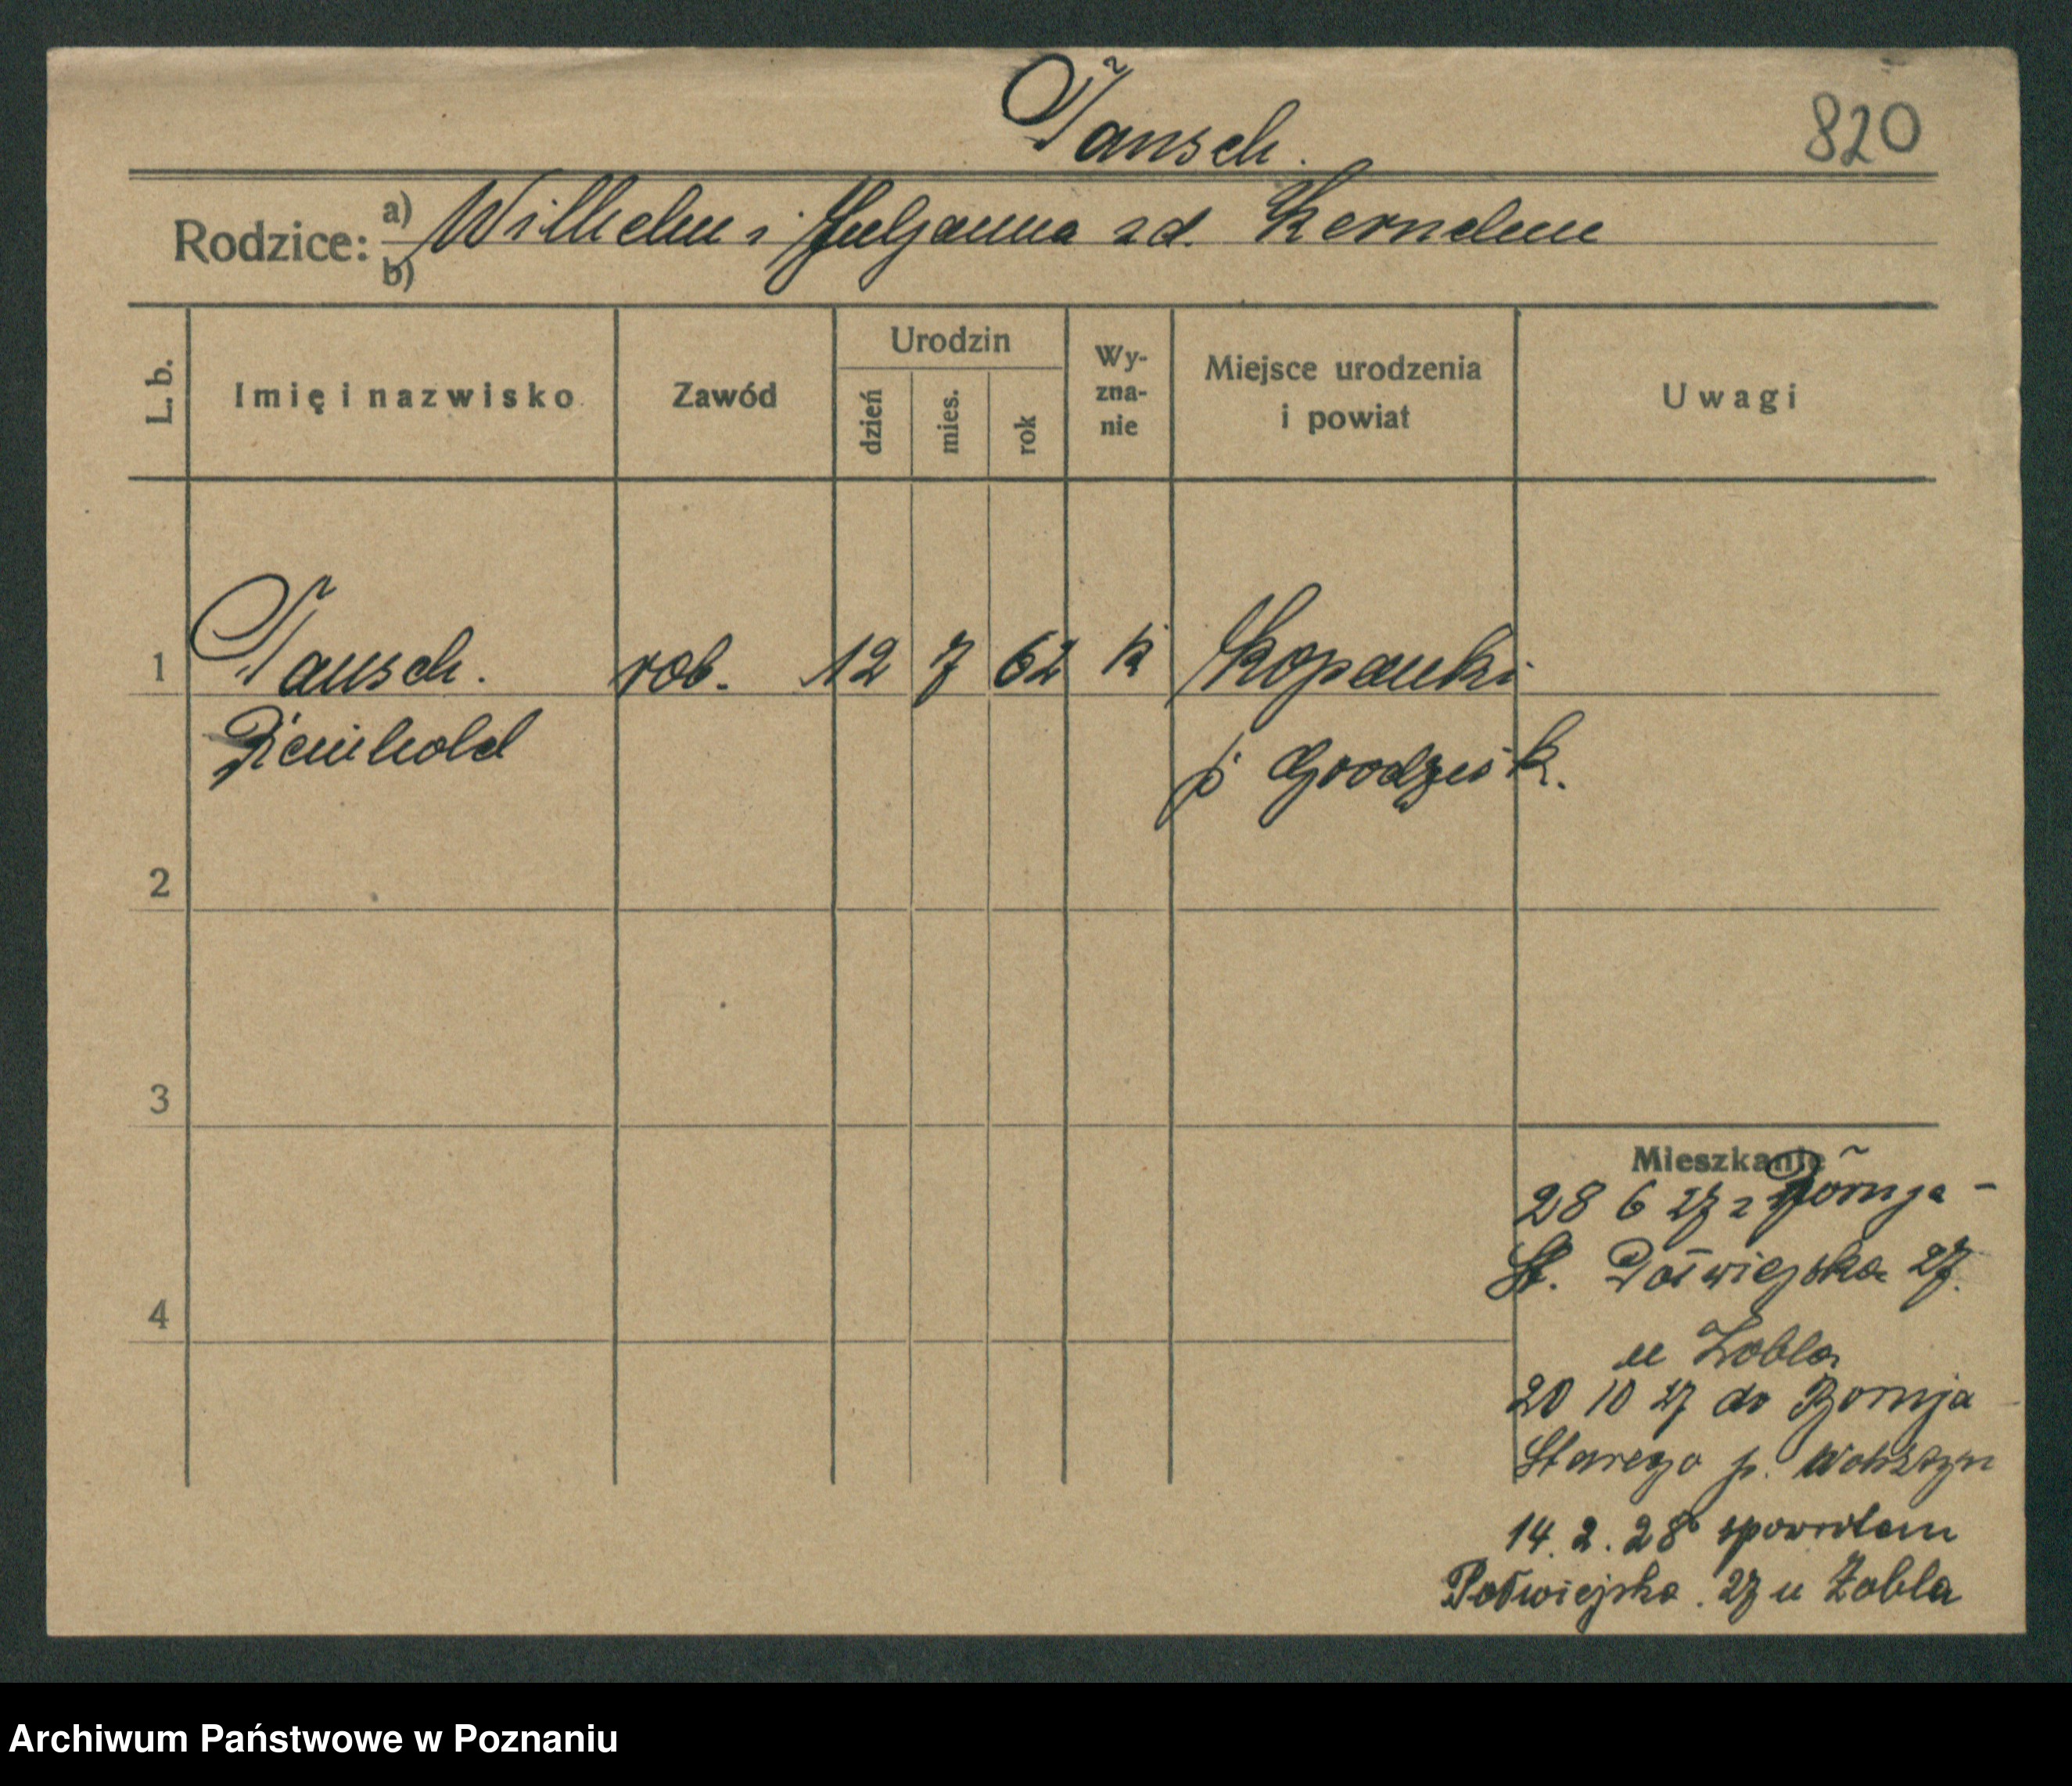 Tausch.
820
Rodzice: a) Wilhelm i Juljanna zd. Kernchen
b)
L. b.
Imię i nazwisko
Zawód
Urodzin
dzień
mies.
rok
Wy-
zna-
nie
Miejsce urodzenia
i powiat
Uwagi
1 Tausch. rob. 12 7 62 k Kopanki
Reinhold p Grodzisk.
2
3
4
Mieszkanie
28 6 27 z Bornja-
St. Półwiejska 27.
u Zobla
20 10 27 do Bornja
Starego p. Wolsztyn
14. 2. 28 spowrotem
Półwiejska. 27 u Zobla
Archiwum Państwowe w Poznaniu